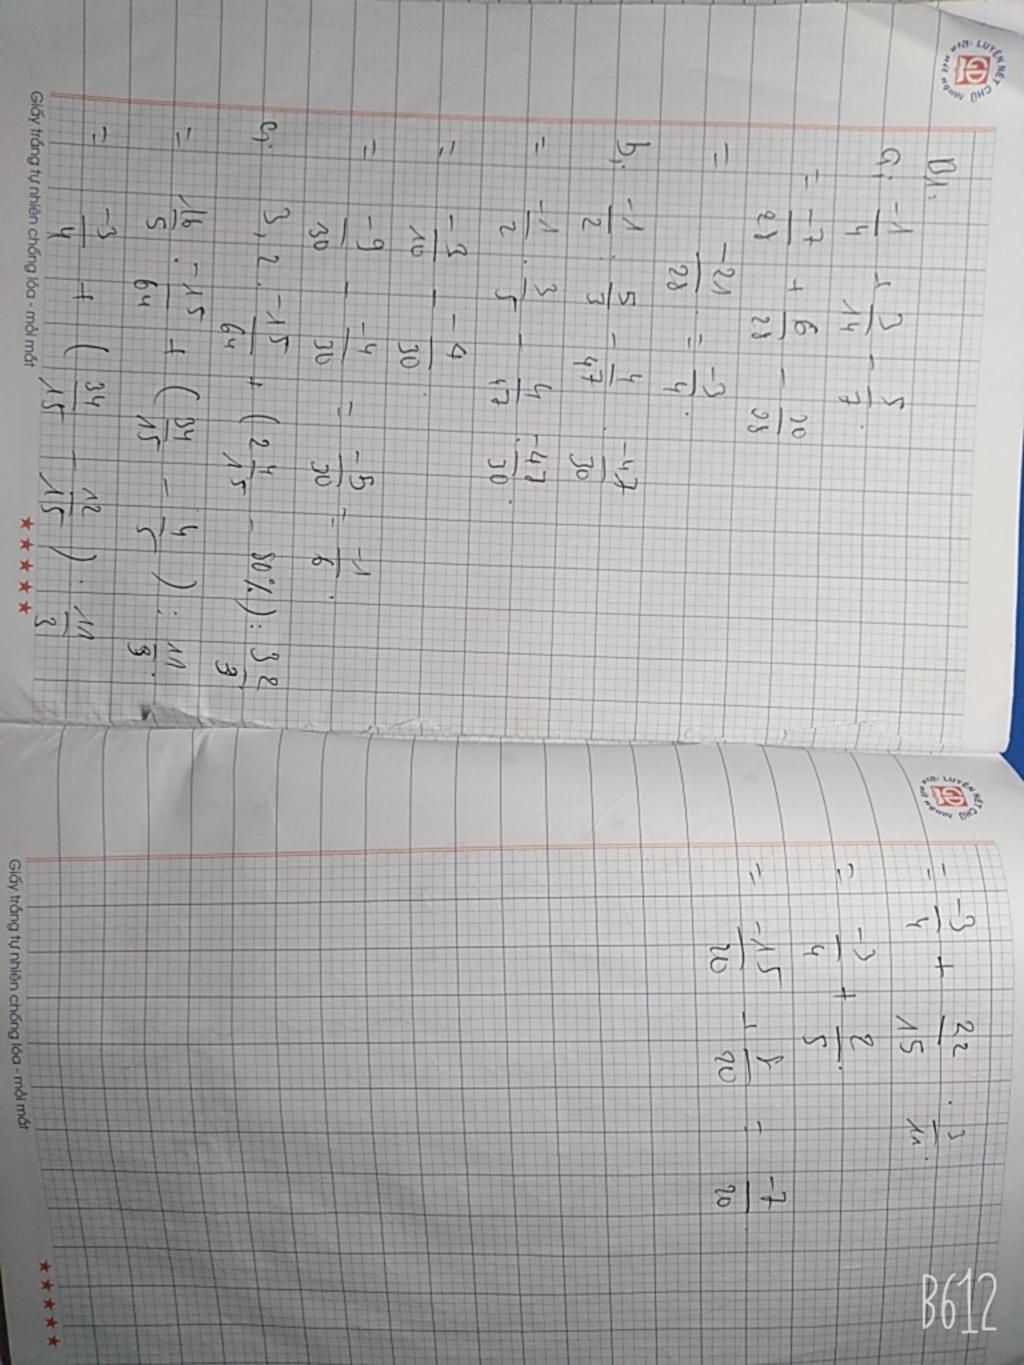 B1.
a, -1/4 + 3/14 - 5/7.
= -7/28 + 6/28 - 20/28
= -21/28 = -3/4.
b, -1/2 : 5/3 - 4/47 . -47/30
= -1/2 . 3/5 - 4/47 . -47/30.
= -3/10 - -4/30.
= -9/30 - -4/30 = -5/30 = -1/6.
c, 3,2 . -15/64 + (2 4/15 - 80%) : 3 2/3
= 16/5 . -15/64 + (34/15 - 4/5) : 11/3.
= -3/4 + (34/15 - 12/15) : 11/3
Giấy trắng tự nhiên chống lóa - mỏi mắt
LUYỆN NÉT CHỮ
GD
= -3/4 + 22/15 . 3/11.
= -3/4 + 2/5.
= -15/20 + 8/20 = -7/20.
Giấy trắng tự nhiên chống lóa - mỏi mắt
LUYỆN NÉT CHỮ
GD
B612